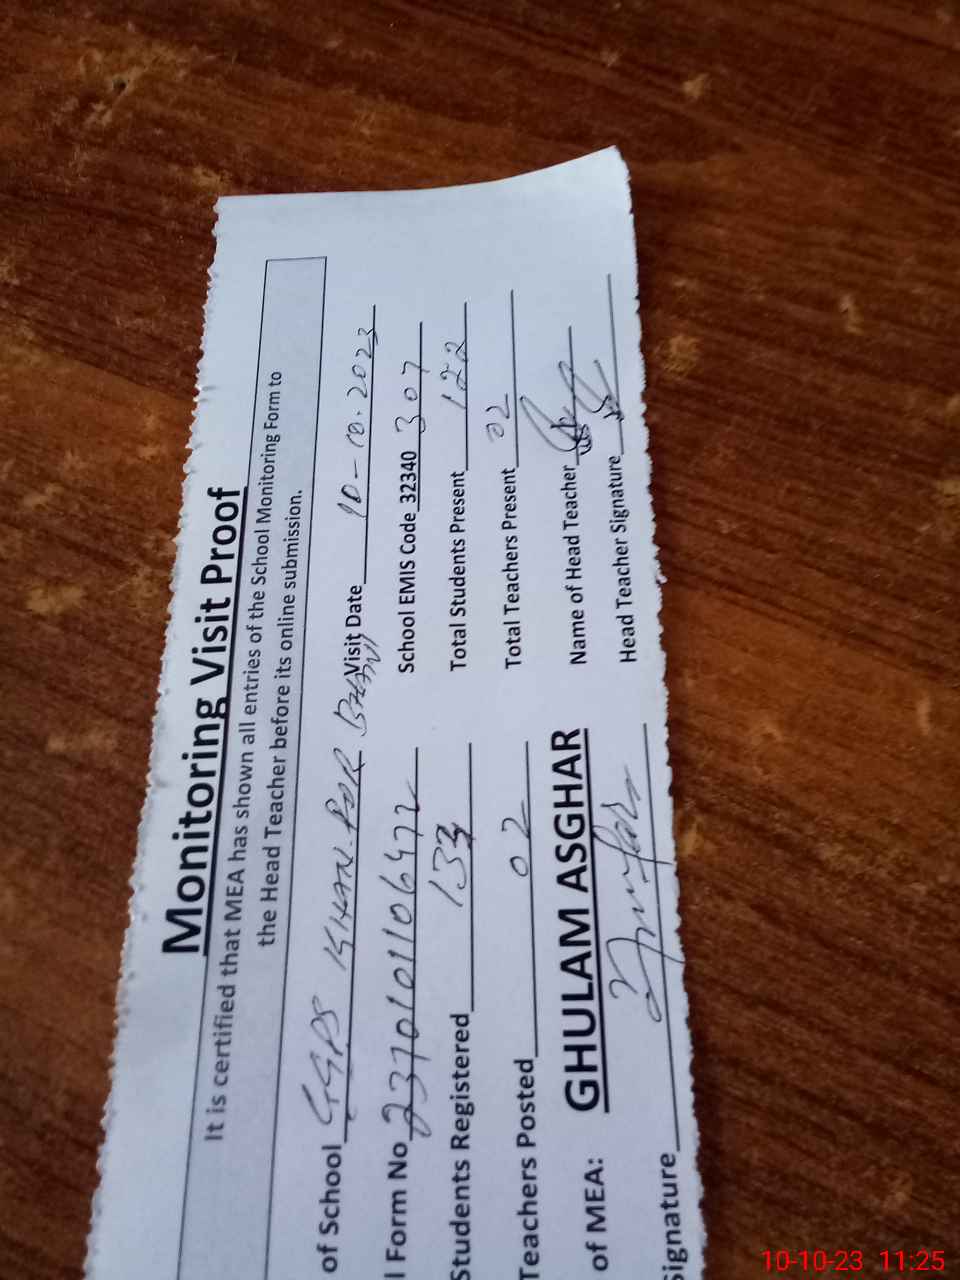 Monitoring Visit Proof
It is certified that MEA has shown all entries of the School Monitoring Form to
the Head Teacher before its online submission.
of School GGPS KHAN PUR Visit Date 10-10-2023
l Form No School EMIS Code 32340 307
Students Registered 133 Total Students Present 122
Teachers Posted 02 Total Teachers Present 02
of MEA: GHULAM ASGHAR Name of Head Teacher
Signature Head Teacher Signature
10-10-23 11:25